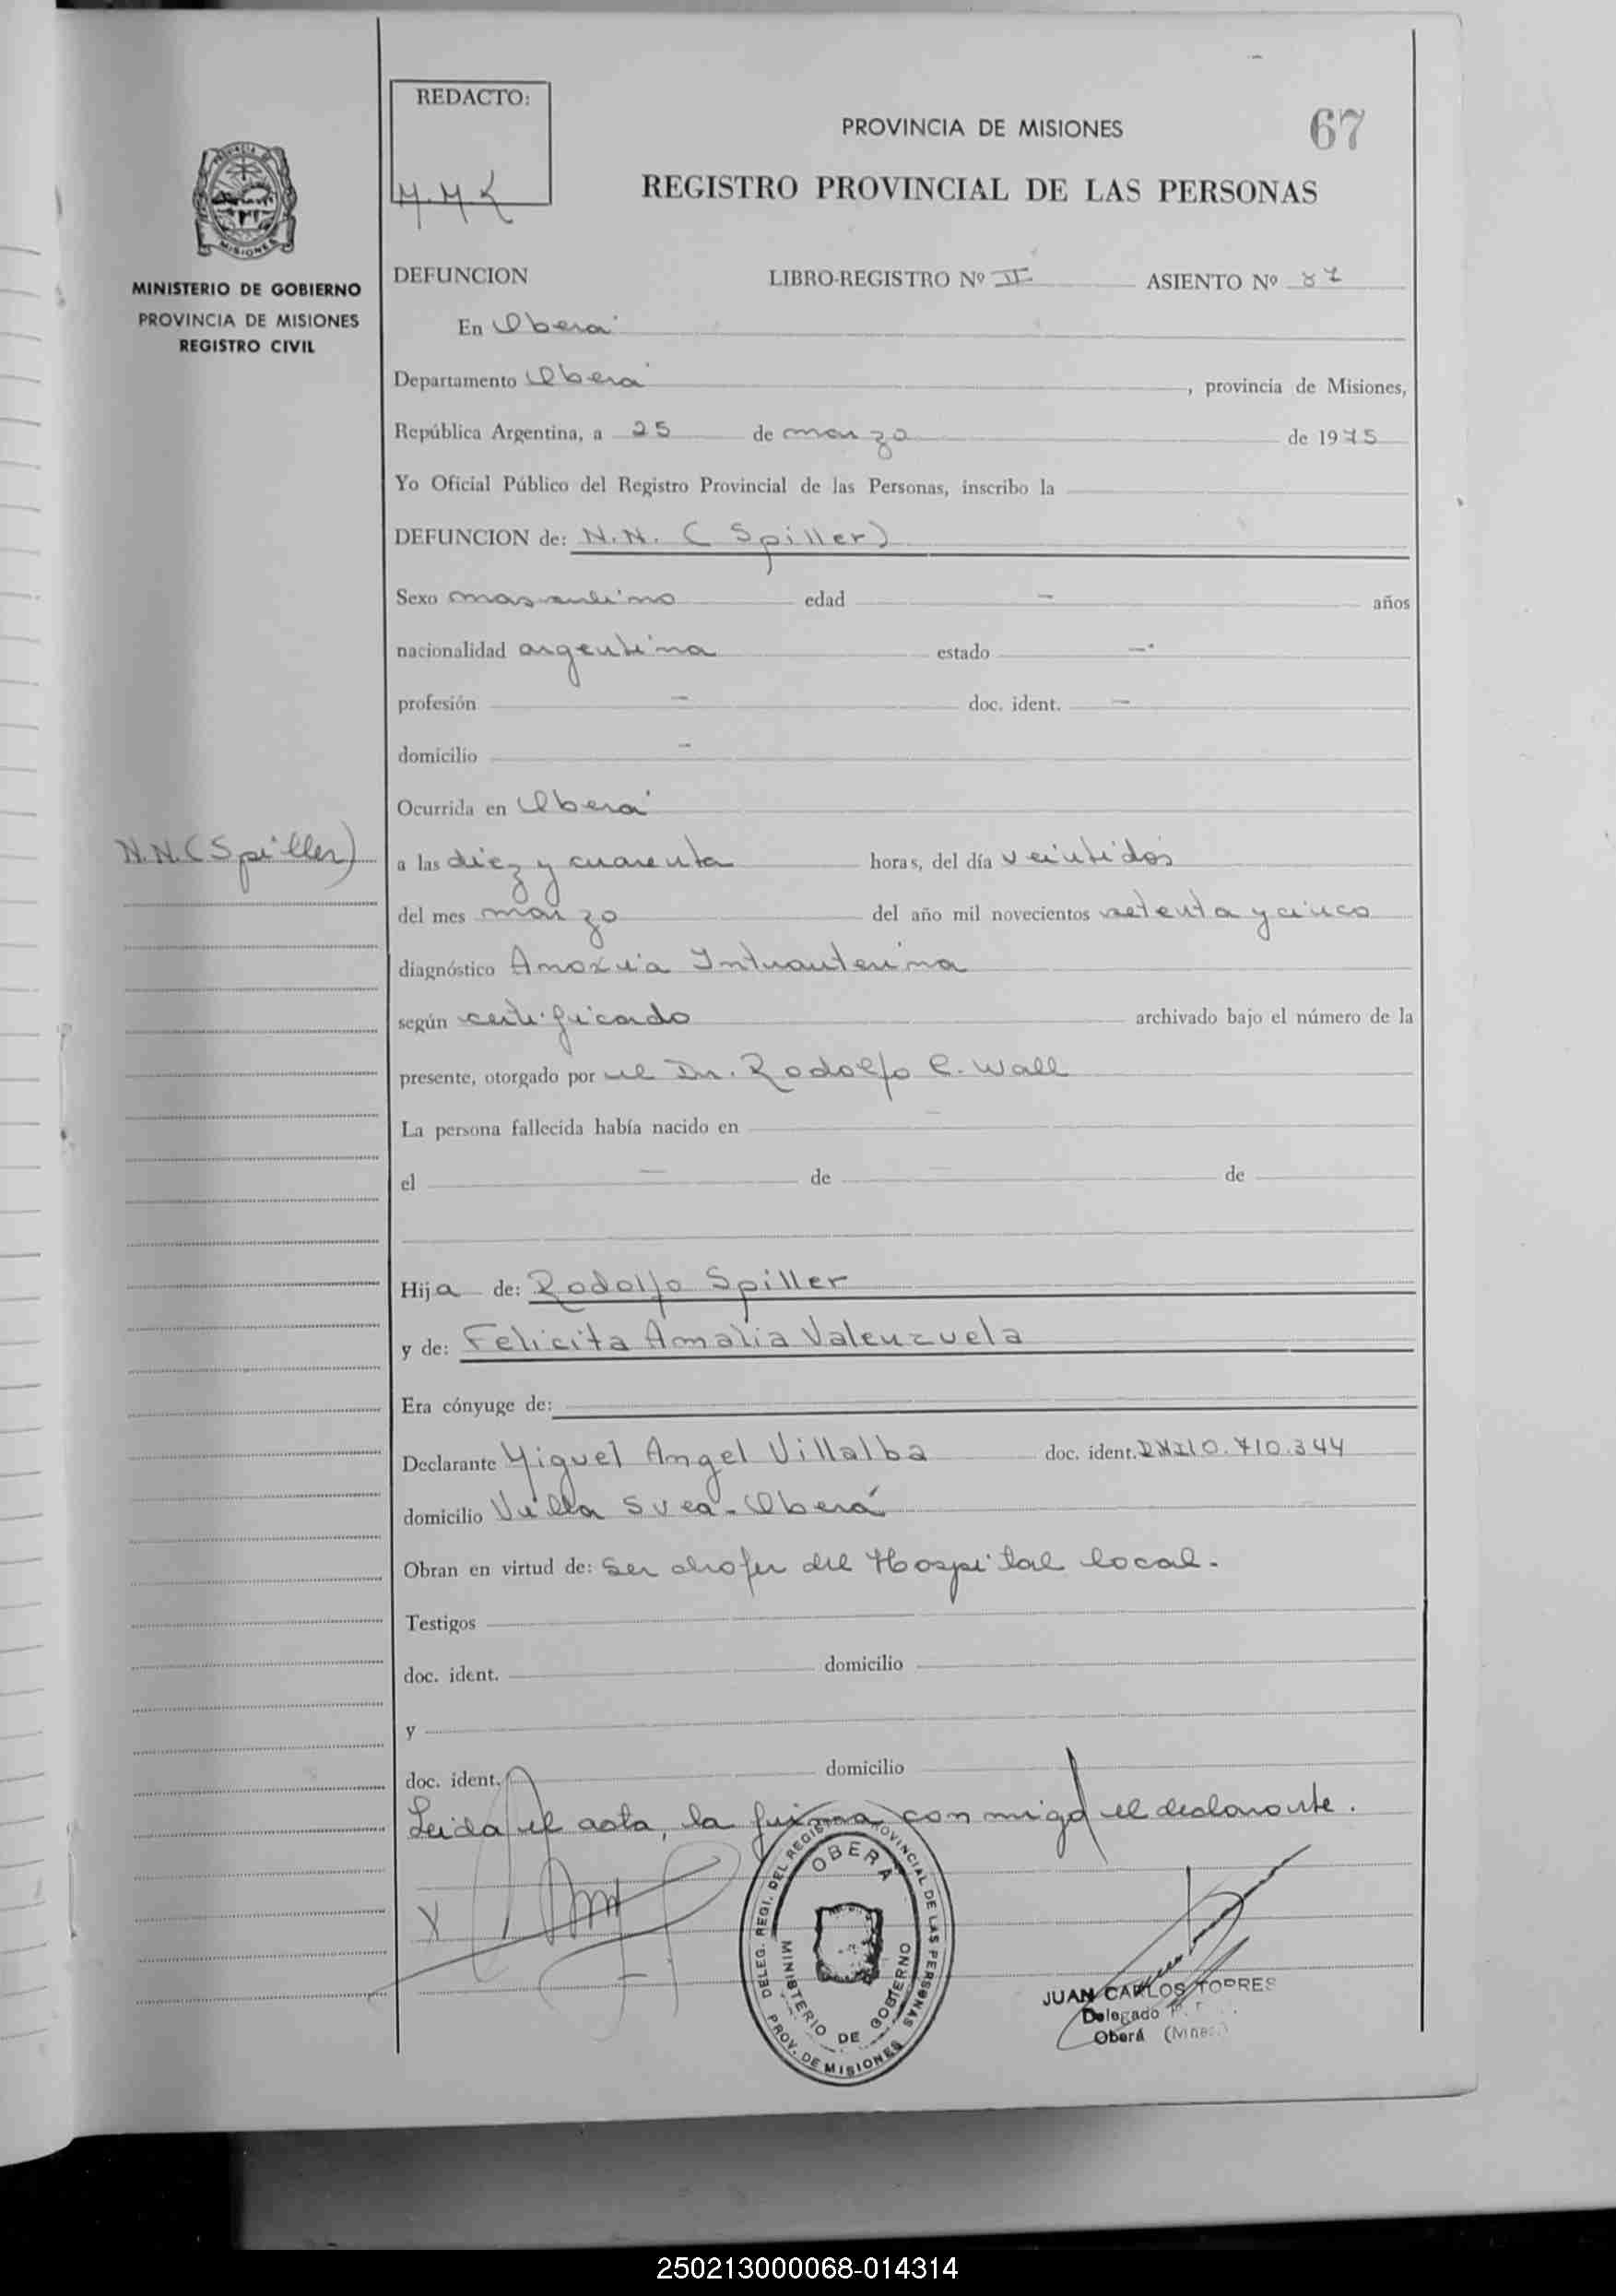 REDACTO:
M.M.K
PROVINCIA DE MISIONES
67
REGISTRO PROVINCIAL DE LAS PERSONAS
MISIONES
MINISTERIO DE GOBIERNO
PROVINCIA DE MISIONES
REGISTRO CIVIL
DEFUNCION LIBRO-REGISTRO Nº II ASIENTO Nº 87
En Oberá
Departamento Oberá, provincia de Misiones,
República Argentina, a 25 de marzo de 1975
Yo Oficial Público del Registro Provincial de las Personas, inscribo la
DEFUNCION de: N.N. (Spiller)
Sexo masculino edad - años
nacionalidad argentina estado -
profesión - doc. ident. -
domicilio -
Ocurrida en Oberá
N.N. (Spiller)
a las diez y cuarenta horas, del día veintidós
del mes marzo del año mil novecientos setenta y cinco
diagnóstico Anoxia Intrauterina
según certificado archivado bajo el número de la
presente, otorgado por el Dr. Rodolfo C. Wall
La persona fallecida había nacido en -
el - de - de
Hija de: Rodolfo Spiller
y de: Felicita Amalia Valenzuela
Era cónyuge de:
Declarante Miguel Angel Villalba doc. ident. DNI10.710.344
domicilio Villa Svea - Oberá
Obran en virtud de: Ser chofer del Hospital local.
Testigos
doc. ident. domicilio
y
doc. ident. domicilio
Leida el acta, la firma conmigo el declarante.
X
DELEG. REGI. DEL REGISTRO PROVINCIAL DE LAS PERSONAS
OBERA
MINISTERIO DE GOBIERNO
PROV. DE MISIONES
JUAN CARLOS TORRES
Delegado
Oberá (Mnes.)
250213000068-014314